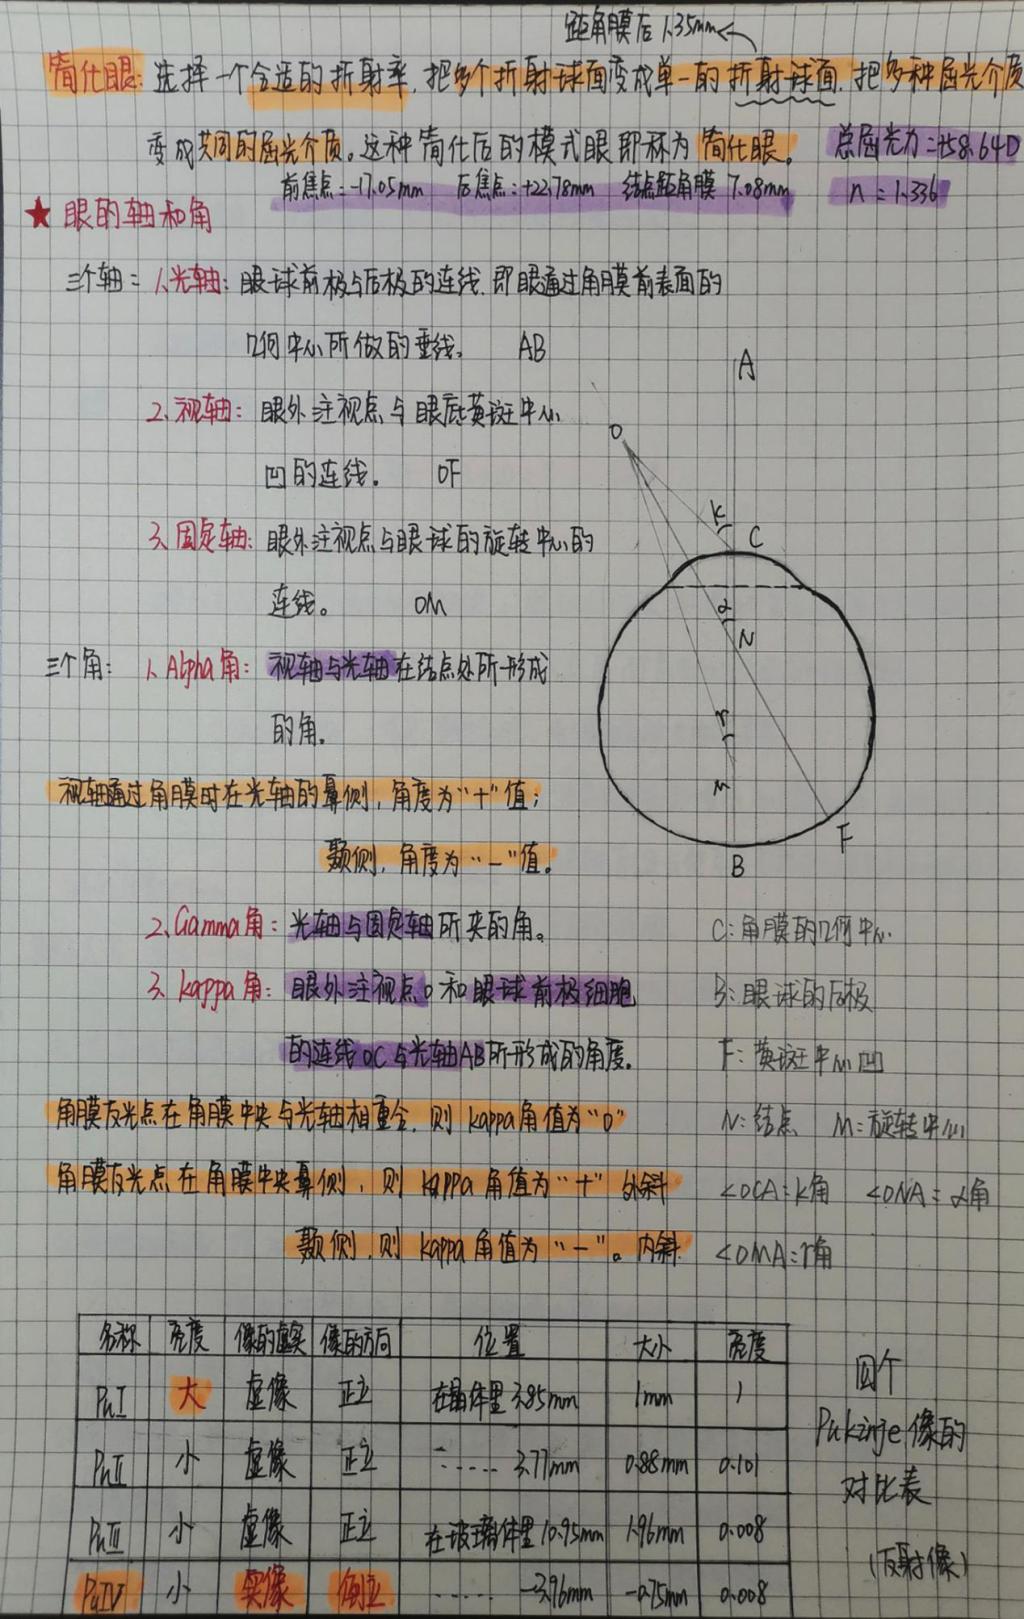 距角膜后 1.35mm←
简化眼: 选择一个合适的折射率,把多个折射球面变成单一的折射球面,把多种屈光介质
变成共同的屈光介质。这种简化后的模式眼即称为简化眼。 总屈光力=+58.64D
前焦点:-17.05mm 后焦点:+22.78mm 结点距角膜 7.08mm n=1.336
★ 眼的轴和角
三个轴: 1.光轴: 眼球前极与后极的连线,即眼通过角膜前表面的
几何中心所做的垂线。 AB
A
2.视轴: 眼外注视点与眼底黄斑中心
O
凹的连线。 OF
K
3.固定轴: 眼外注视点与眼球的旋转中心的
C
连线。 OM
α
N
三个角: 1.Alpha角: 视轴与光轴在结点处所形成
的角。
r
M
视轴通过角膜时在光轴的鼻侧,角度为“+”值;
F
颞侧,角度为“-”值。
B
2.Gamma角: 光轴与固定轴所夹的角。
C: 角膜的几何中心
3.kappa角: 眼外注视点O和眼球前极细胞
B: 眼球的后极
的连线OC与光轴AB所形成的角度。
F: 黄斑中心凹
角膜反光点在角膜中央与光轴相重合,则kappa角值为“0”
N: 结点 M: 旋转中心
角膜反光点在角膜中央鼻侧,则kappa角值为“+” 外斜
<OCA=K角 <ONA=α角
颞侧,则kappa角值为“-”。内斜
<OMA=r角
名称 亮度 像的虚实 像的方向 位置 大小 亮度
PuI 大 虚像 正立 在晶体里 3.85mm 1mm 1
PuII 小 虚像 正立 ...... 3.77mm 0.88mm 0.101
PuIII 小 虚像 正立 在玻璃体里 10.95mm 1.96mm 0.008
PuIV 小 实像 倒立 ...... -3.96mm -0.75mm 0.008
四个
Pukinje像的
对比表
(反射像)